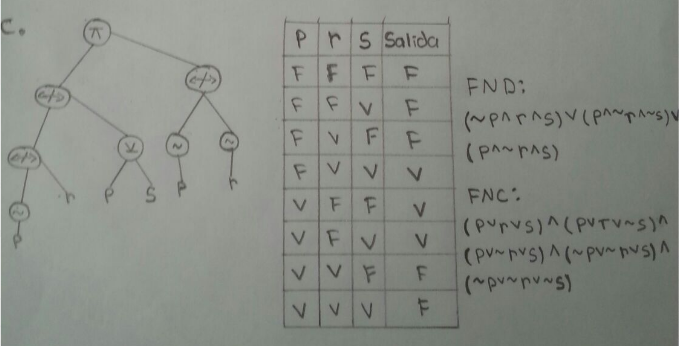 C.
π
<-/-> <-/->
<-/-> ⊻ ~ ~
~ r p s p r
p
p r s Salida
F F F F
F F V F
F V F F
F V V V
V F F V
V F V V
V V F F
V V V F
FND:
(~p∧r∧s)∨(p∧~r∧~s)∨
(p∧~r∧s)
FNC:
(p∨r∨s)∧(p∨r∨~s)∧
(p∨~r∨s)∧(~p∨~r∨s)∧
(~p∨~r∨~s)